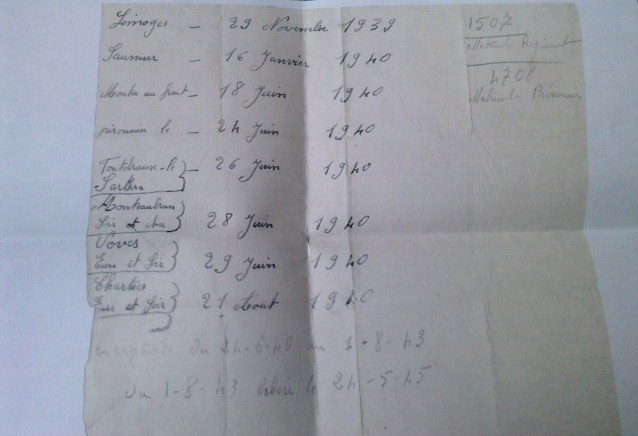 Limoges - 29 Novembre 1939
Saumur - 16 Janvier 1940
Monter au front - 18 Juin 1940
le - 24 Juin 1940
- 26 Juin 1940
Sarthe
28 Juin 1940
et cher
Voves
Eure et Loir 29 Juin 1940
Chartres
Eure et Loir 21 Aout 1940
du 24-6-40 au 1-8-43
du 1-8-43 libéré le 24-5-45
1507
Matricule Régiment
4708
Matricule Prisonnier